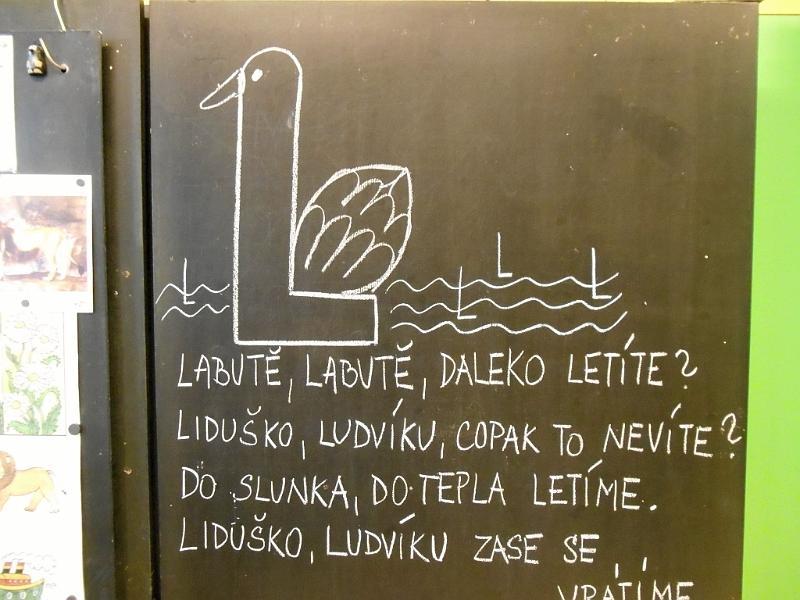 LABUTĚ, LABUTĚ, DALEKO LETÍTE?
LIDUŠKO, LUDVÍKU, COPAK TO NEVÍTE?
DO SLUNKA, DO TEPLA LETÍME.
LIDUŠKO, LUDVÍKU ZASE SE
VRÁTÍME